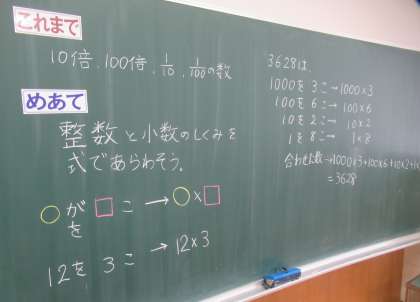 これまで
10倍、100倍、1/10、1/100の数
めあて
整数と小数のしくみを
式であらわそう。
○が□こ→○×□
を
12を3こ→12×3
3628は、
1000を3こ→1000×3
100を6こ→100×6
10を2こ→10×2
1を8こ→1×8
合わせた数→1000×3+100×6+10×2+1×
=3628